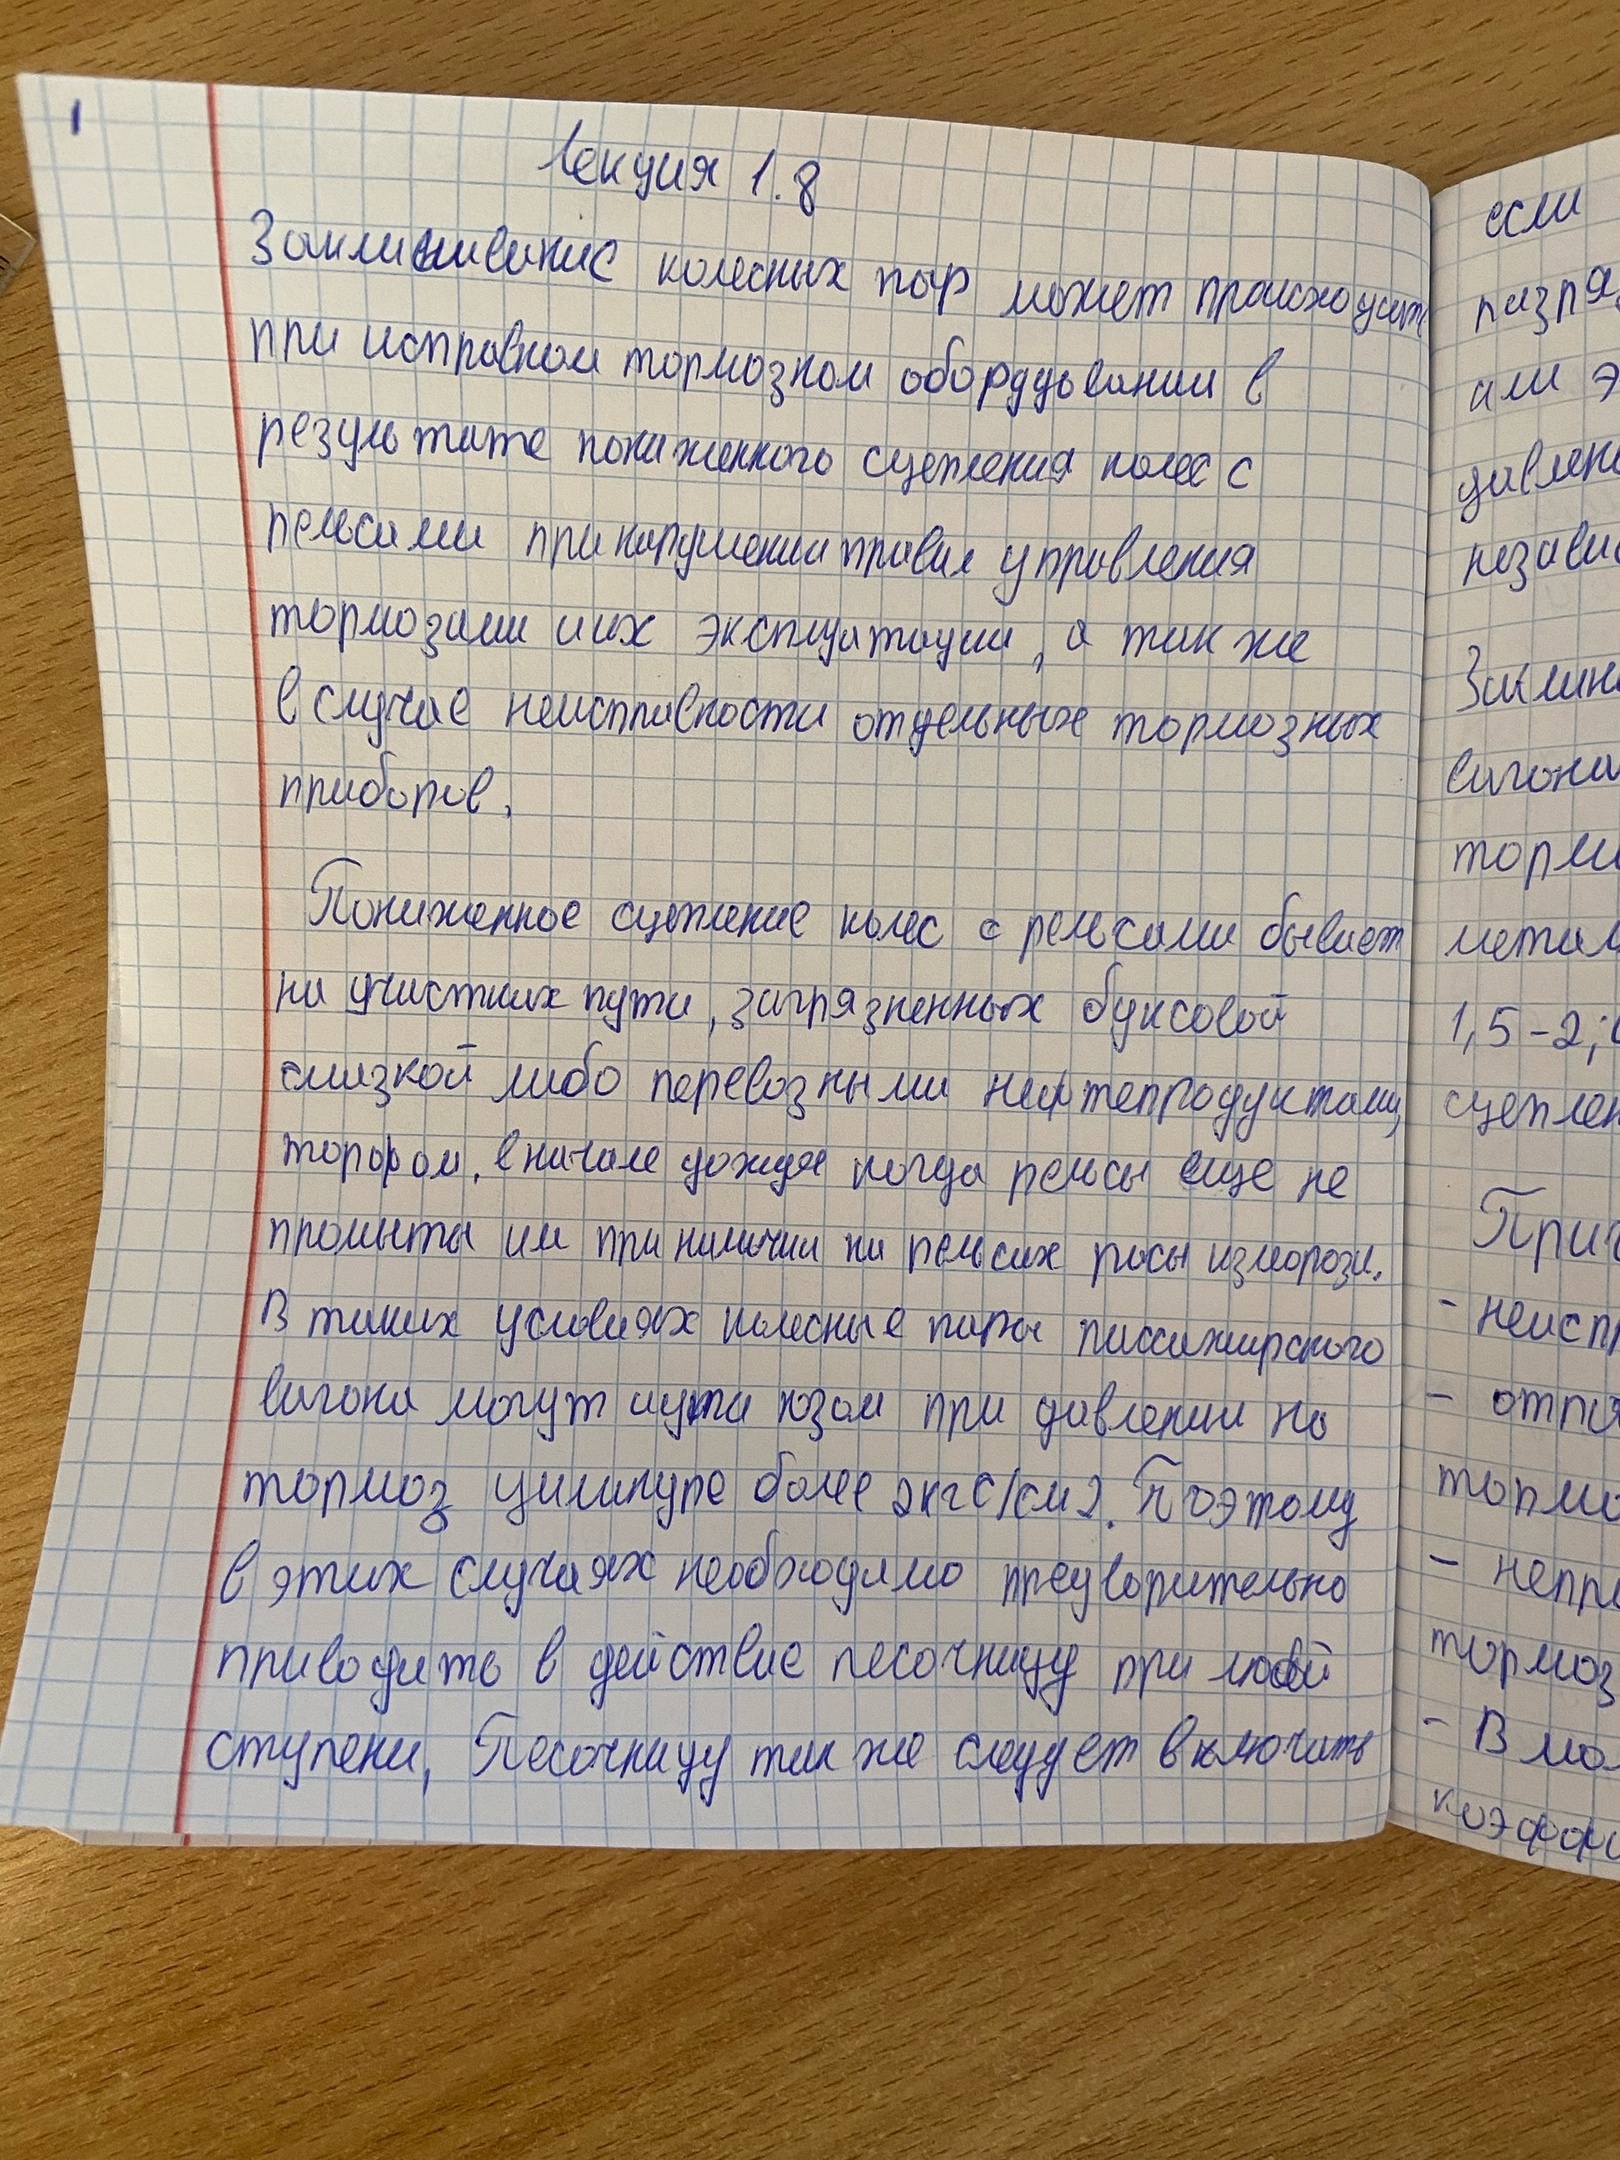 1
Лекция 1.8
Заклинивание колесных пар может происходить
при исправном тормозном оборудовании в
результате пониженного сцепления колес с
рельсами при нарушении правил управления
тормозами и их эксплуатации, а так же
в случае неисправности отдельных тормозных
приборов.
Пониженное сцепление колес с рельсами бывает
на участках пути, загрязненных буксовой
смазкой либо перевозными нефтепродуктами,
торфом, вначале дождя когда рельсы еще не
промыты им при наличии на рельсах росы изморози.
В таких условиях колесные пары пассажирского
вагона могут идти юзом при давлении на
тормоз цилиндре более 2кгс/см2. Поэтому
в этих случаях необходимо предворительно
приводить в действие песочницу при любой
ступени, Песочницу так же следует включать
если
разря
или э
давлен
незави
Заклин
вагона
торм
метал
1,5-2,
сцеплен
При
- неисп
- отпр
тормо
- непр
тормоз
- В мо
коэффи